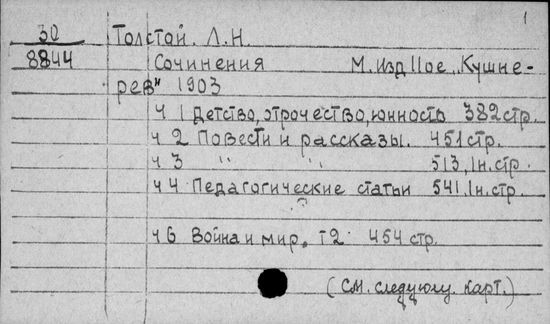 1
30 Толстой. Л.Н.
8844 Сочинения М. Изд 11ое „Кушне-
рев" 1903
ч 1 Детство, отрочество, юнность 382 стр.
ч 2 Повести и рассказы. 451 стр.
ч 3 " " 513, 1н. стр.
ч 4 Педагогические статьи 541, 1н. стр.
ч 6 Война и мир. т 2 454 стр.
(см. следующую. карт.)